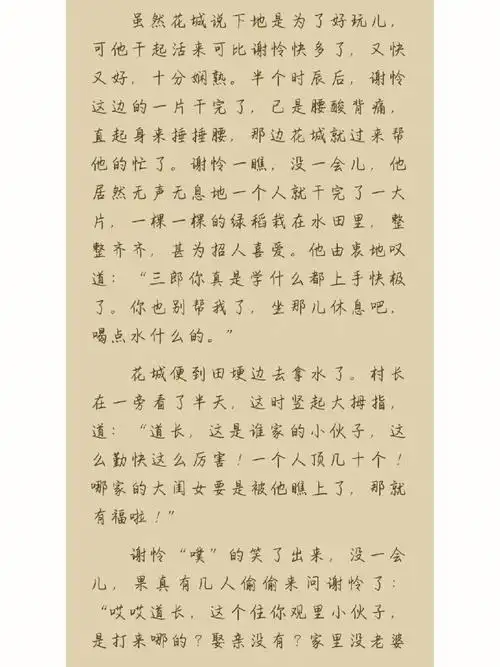 虽然花城说下地是为了好玩儿，
可他干起活来可比谢怜快多了，又快
又好，十分娴熟。半个时辰后，谢怜
这边的一片干完了，已是腰酸背痛，
直起身来捶捶腰，那边花城就过来帮
他的忙了。谢怜一瞧，没一会儿，他
居然无声无息地一个人就干完了一大
片，一棵一棵的绿稻栽在水田里，整
整齐齐，甚为招人喜爱。他由衷地叹
道：“三郎你真是学什么都上手快极
了。你也别帮我了，坐那儿休息吧，
喝点水什么的。”
花城便到田埂边去拿水了。村长
在一旁看了半天，这时竖起大拇指，
道：“道长，这是谁家的小伙子，这
么勤快这么厉害！一个人顶几十个！
哪家的大闺女要是被他瞧上了，那就
有福啦！”
谢怜“噗”的笑了出来，没一会
儿，果真有几人偷偷来问谢怜了：
“哎哎道长，这个住你观里小伙子，
是打来哪的？娶亲没有？家里没老婆